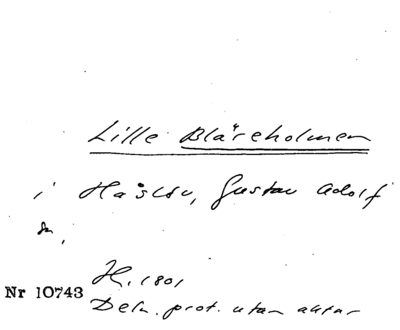 Lille Blåreholmen
i Hasslö, Gustav Adolf
sn.
H. 1801
Nr 10743
Dels. prot. utan aktnr